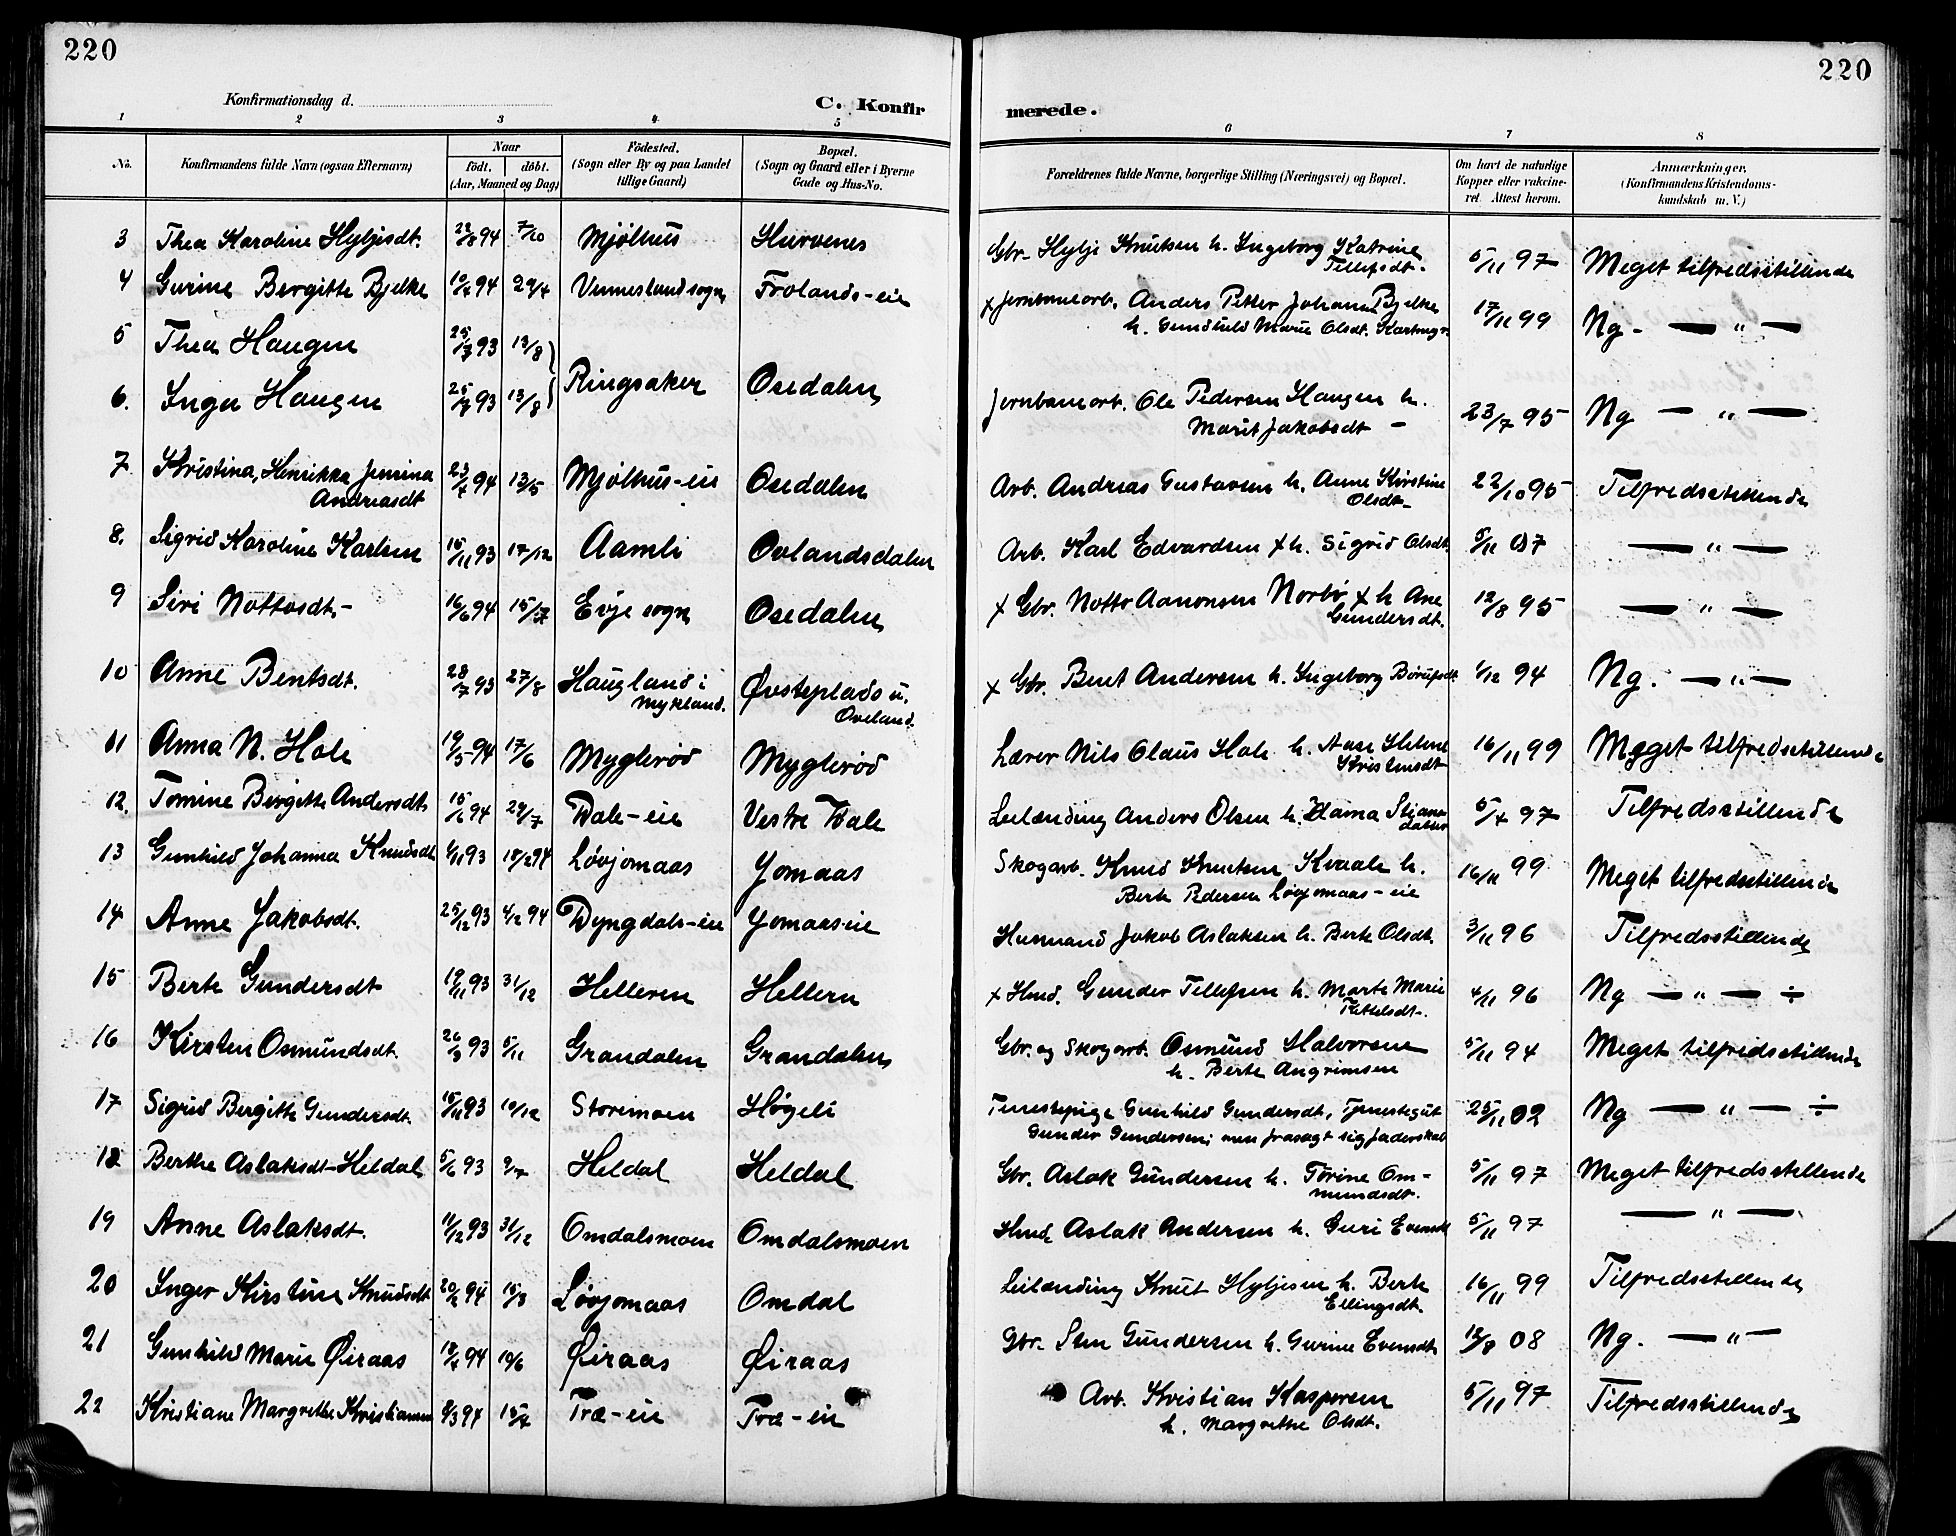 220
220
Konfirmationsdag d.
C. Konfirmerede.
1 2 3 4 5 6 7 8
No. Konfirmandens fulde Navn (ogsaa Efternavn) Naar født, døbt. (Aar, Maaned og Dag) Fødested. (Sogn eller By og paa Landet tillige Gaard) Bopæl. (Sogn og Gaard eller i Byerne Gade og Hus-No. Forældrenes fulde Navne, borgerlige Stilling (Næringsvei) og Bopæl. Om havt de naturlige Kopper eller vakcineret. Attest herom. Anmærkninger. (Konfirmandens Kristendomskundskab m. V.)
3 Thea Karoline Hyljesdt. 94 7/10 Mjølhus Hurvenes Gbr. Hylje Knutsen h. Ingeborg Katrine Tellefsdt. 5/11 97 Meget tilfredsstillende
4 Gurine Bergitte Bjelke 10/4 94 29/4 Venneslandsogn Frolands-eie x Jernbanearb. Anders Petter Johann Bjelke h. Gundhild Marie Olsdt. 17/11 99 Ng - — „ —
5 Thea Haugen 93 13/8
6. Inga Haugen 93 13/8 Ringsaker Osedalen Jernbanearb. Ole Pedersen Haugen h. Marit Jakobsdt - 23/7 95 Ng — „ —
7 Kristina, Henrikka Jensina Andreasdt 23/4 94 13/5 Mjølhus-eie Osedalen Arb. Andreas Gustavsen h. Anne Kirstine Olsdt- 22/10 95 Tilfredsstillende
8. Sigrid Karoline Karlsen 15/11 93 17/12 Aamli Ovlandsdalen Arb. Karl Edvardsen x h. Sigrid Olsdt. 5/11 07 — „ —
9 Siri Nottosdt- 16/6 94 15/7 Evje sogn Osedalen x Gbr. Notto Aanonsen Norbø x h Ane Gundersdt. 12/8 95 — „ —
10 Anne Bentsdt. 28/7 93 27/8 Haugland i Mykland. Øvsteplads u. Oveland. x Gbr. Bent Andersen h. Ingeborg Børufsdt 1/12 94 Ng. — „ —
11 Anna N. Hole 19/5 94 17/6 Myglerød Myglerød Lærer Nils Olaus Hole h. Aase Helene Kristensdt 16/11 99 Meget tilfredsstillende
12. Tomine Birgitte Andersdt. 94 29/7 Dale-eie Vestre Dale Leilænding Anders Olsen h. Hanna 5/4 97 Tilfredsstillende
13 Gunhild Johanna Knudsdt 93 18/2 94 Løvjomaas Jomaas Skogarb. Knud Knutsen Kvaale h. Berte Pedersen Løvjomaas-eie 16/11 99 Meget tilfredsstillende
14 Anne Jakobsdt. 25/12 93 4/12 94 Dyngdals-eie Jomaas-eie Husmand Jakob Aslaksen h. Berte Olsdt. 3/11 96 Tilfredsstillende
15 Berte Gundersdt 19/11 93 31/12 Helleren Hellern x Hmd. Gunder Tellefsen h. Marte Marie Kittelsdt-. 4/11 96 Ng — „ — ÷
16 Kirsten Osmundsdt. 26/9 93 5/11 Grandalen Grandalen Gbr. og Skogarb. Osmund Halvorsen h. Berte Angrimsen 5/11 94 Meget tilfredsstillende
17 Sigrid Bergitte Gundersdt. 15/11 93 10/12 Storemoen Høgeli Tenestepige Gunhild Gundersdt, Tjenestegut Gunder Gundersen; men frasagt sig faderskab 25/11 02 Ng — „ — ÷
18 Berthe Aslaksdt-Heldal 5/6 93 9/7 Heldal Heldal Gbr. Aslak Gundersen h. Torine Ommundsdt. 5/11 97 Meget tilfredsstillende
19 Anne Aslaksdt. 11/12 93 31/12 Omdalsmoen Omdalsmoen Hmd Aslak Andersen h. Guri Evensdt 5/11 97 — „ —
20 Inger Kirstine Knudsdt 94 Løvjomaas Omdal Leilænding Knut Hyljesen h. Berte Ellingsdt. 16/11 99 Tilfredsstillende
21 Gunhild Marie Øiraas 94 10/6 Øiraas Øiraas Gbr. Sten Gundersen h. Gurine Evensdt 08 Ng. — „ —
22 Kristiane Margrethe Kristiansen 94 15/4 Træ-eie Træ-eie Arb. Kristian Kaspersen h. Margrethe Olsdt. 5/11 97 Tilfredsstillende